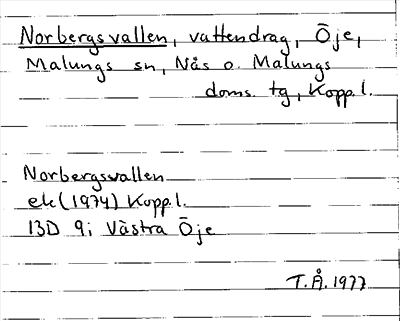 Norbergsvallen, vattendrag, Öje,
Malungs sn, Nås o. Malungs
doms. tg, Kopp.l.
Norbergsvallen
ek (1974) Kopp.l.
13D 9i Västra Öje
T.Å. 1977